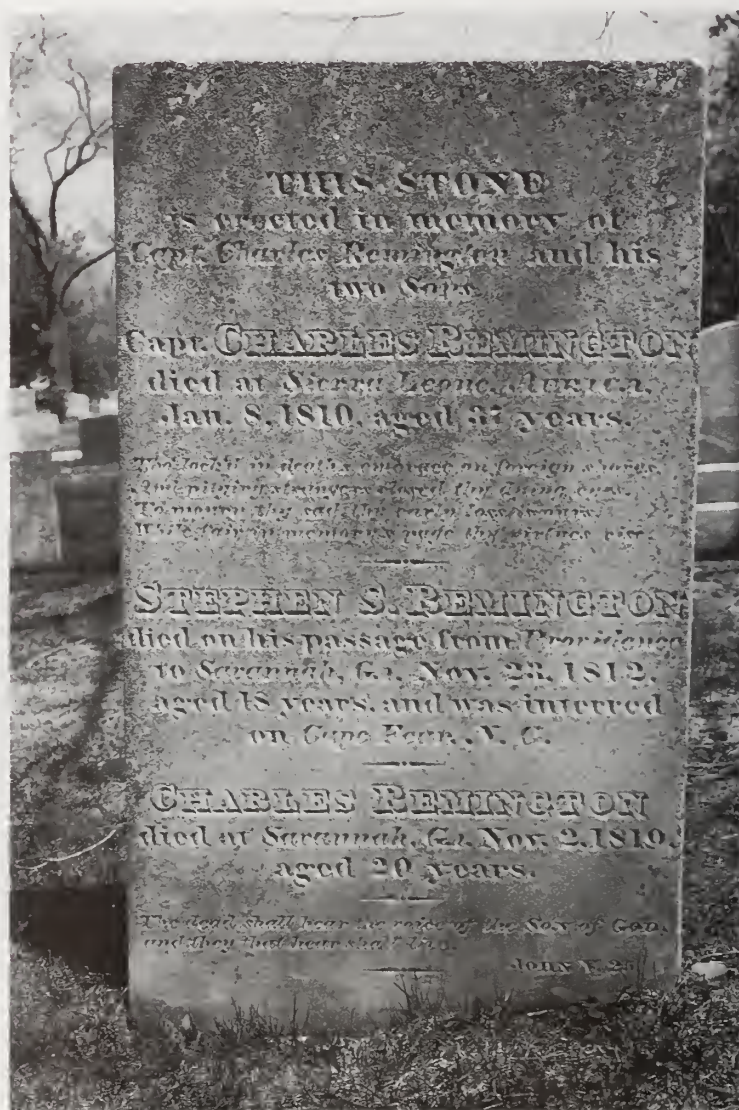 THIS STONE
is erected in memory of
Capt. Charles Remington and his
two Sons
Capt. CHARLES REMINGTON
died at Sierra Leone, AFRICA,
Jan. 8, 1810, aged 37 years.
in death's embrace on foreign shores
strangers closed thy dying eyes
To mourn thy sad thy early loss
STEPHEN S. REMINGTON
died on his passage from Providence
to Savannah, Ga. Nov. 23, 1812,
aged 18 years, and was interred
on Cape Fear, N. C.
CHARLES REMINGTON
died at Savannah, Ga. Nov. 2, 1819,
aged 20 years.
The dead shall hear the voice of the Son of GOD,
and they that hear shall live.
JOHN V. 25